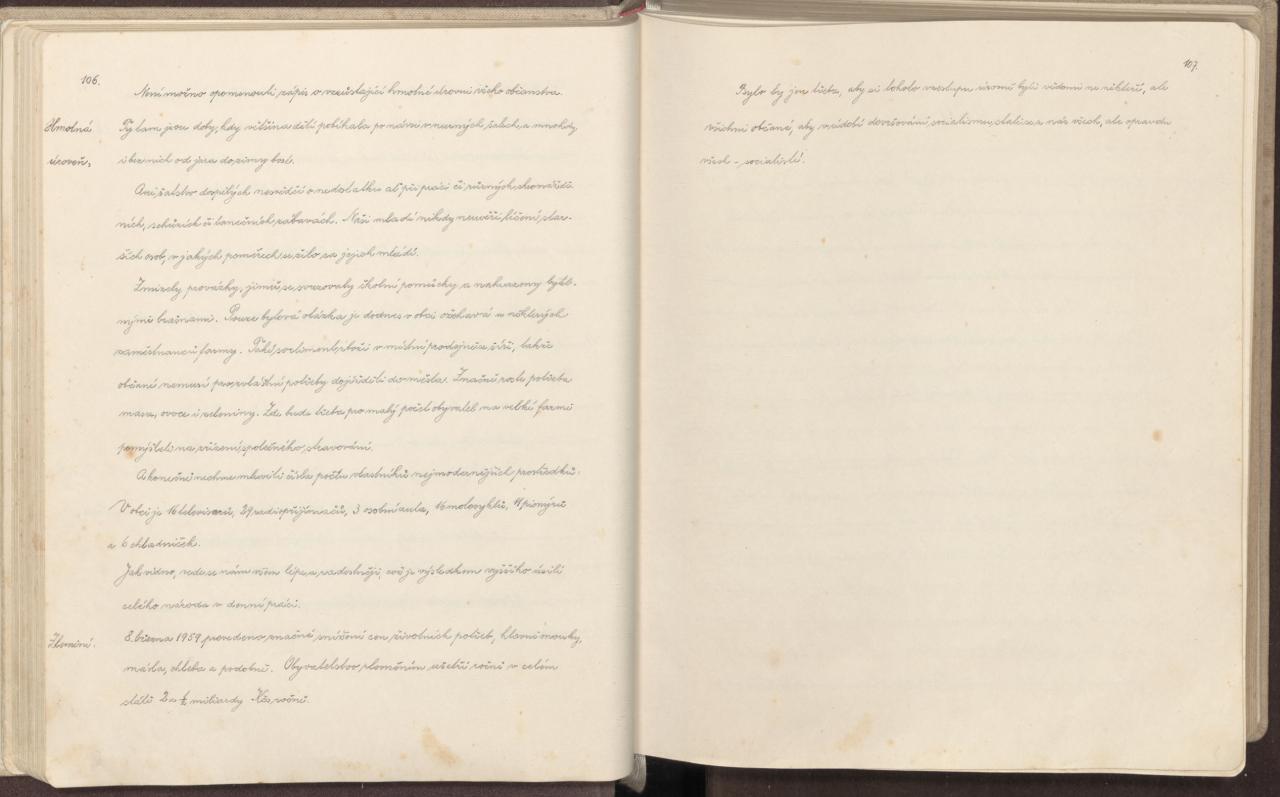 106.
Není možno opomenouti zápis o vzrůstající hmotné úrovni všeho občanstva.
Hmotná
Ty tam jsou doby, kdy většina dětí pobíhala po návsi v nuzných šatech, a mnohdy
úroveň.
i bez nich od jara do zimy bosi.
Ani šatstvo dospělých nesvědčí o nedostatku ať při práci či různých shromáždě-
ních, schůzích či tanečních zábavách. Naši mladí nikdy neuvěří líčení star-
ších osob, v jakých poměrech se žilo za jejich mládí.
Zmizely provázky, jimiž se svazovaly školní pomůcky a nahrazeny
nými brašnami. Pouze bytová otázka je dodnes v obci ožehavá u některých
zaměstnanců farmy. Také sortiment zboží v místní prodejně se šíří, takže
občané nemusí pro zvláštní potřeby dojížděti do města. Značně roste potřeba
masa, ovoce i zeleniny. Zde bude třeba pro malý počet obyvatel na velké farmě
pomýšleti na zřízení společného stravování.
A konečně nechme mluviti čísla počtu vlastníků nejmodernějších prostředků.
V obci je 16 televisorů, 29 radiopřijímačů, 3 osobní auta, 16 motocyklů, 11 pionýrů
a 6 chladniček.
Jak vidno, vede se nám všem lépe a radostněji, což je výsledkem vyššího úsilí
celého národa v denní práci.
Zlevnění.
8. března 1959 provedeno značné snížení cen životních potřeb, hlavně mouky,
másla, chleba a podobně. Obyvatelstvo zlevněním ušetří ročně v celém
státě 2 a ½ miliardy Kčs ročně.
107.
Bylo by jen třeba, aby si tohoto vzestupu úrovně byli vědomi ne někteří, ale
všichni občané, aby v údobí dovršování socialismu stali se z nás všech, ale opravdu
všech - socialisté.